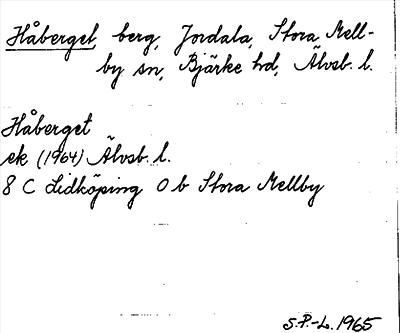 Håberget, berg, Jordala, Stora Mell-
by sn, Bjärke hd, Älvsb. l.
Håberget
ek (1964) Älvsb. l.
8 C Lidköping 0 b Stora Mellby
S.P.-L. 1965